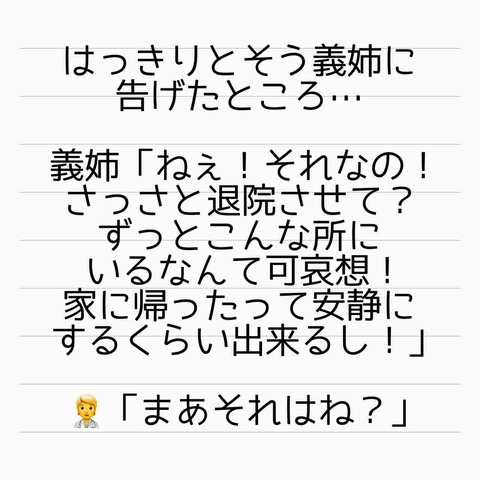 はっきりとそう義姉に
告げたところ…
義姉「ねぇ！それなの！
さっさと退院させて？
ずっとこんな所に
いるなんて可哀想！
家に帰ったって安静に
するくらい出来るし！」
🧑‍⚕️「まあそれはね？」